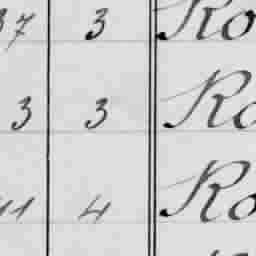 37 3 Ro
3 3 Ro
11 4 Ro